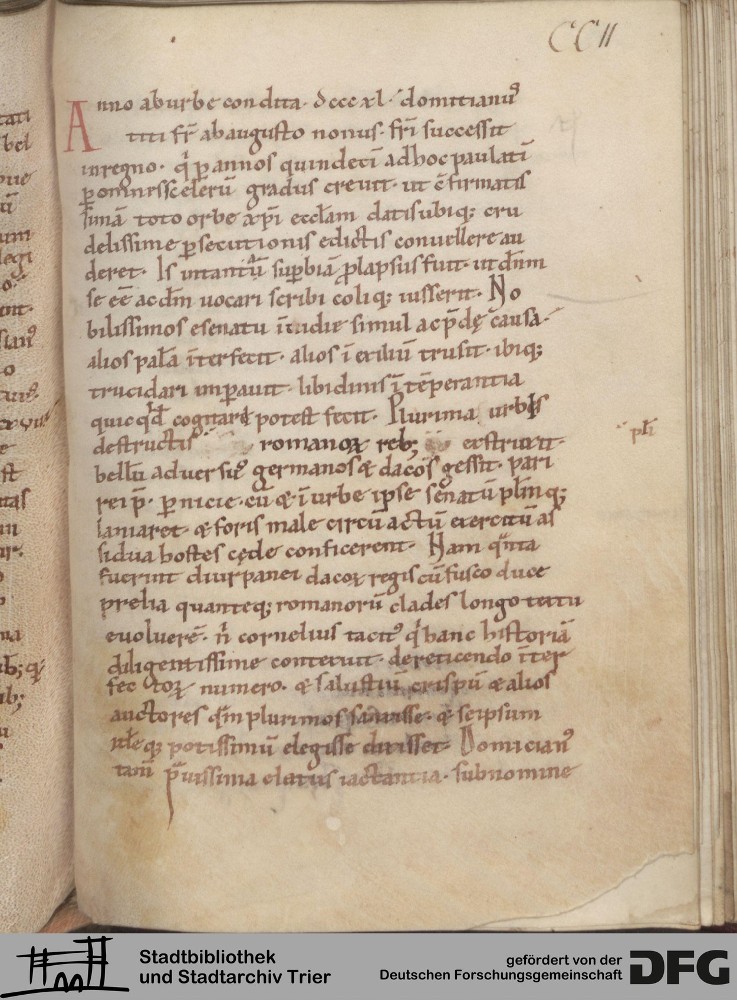 CCII
Anno ab urbe condita · dcccxl · domitianuˀ
titi fr̄ ab augusto nonus · fr̄i successit
in regno · q̄ p̱ annos quindeci ad hoc paulatī
p̱ omnes scelerū gradus creuit · ut c̄firmatis
simā toto orbe xp̄i eccłam datis ubiq; cru
delissime p̱secutionis edictis conuellere au
deret · Is intantū sup̱biā ꝓlapsus fuit · ut dn̄m
se eē ac dm̄ uocari scribi coliq; iusserit · No
bilissimos e senatu īuidie simul ac p̄dę causa ·
alios palā īterfecit · alios ī exiliū trusit · ibiq;
trucidari imp̱auit · libidinis ītēperantia
quicqd̄ cogitari potest fecit · Plurima urbis
destructis romanoꝝ reb; exstruxit ·
bellū aduersuˀ germanos & dacos gessit · pari
rei p̄ · p̱nicie · cū & ī urbe ipse senatū płmq;
laniaret · & foris male circūactū exercitū as
sidua hostes cęde conficerent · Nam q̄nta
fuerint diurpanei dacoꝝ regis cū fusco duce
prelia quanteq; romanorū clades longo textu
euoluerē · n̄ cornelius tacitˀ q̄ hanc historiā
diligentissime contexuit · de reticendo īter
fectoꝝ numero · & salustiū crispū & alios
auctores q̄m plurimos sanxisse · & seipsum
idēq; potissimū elegisse dixisset · Domicianˀ
tam̄ p̄uissima elatus iactantia · sub nomine
Stadtbibliothek
und Stadtarchiv Trier
gefördert von der
Deutschen Forschungsgemeinschaft
DFG